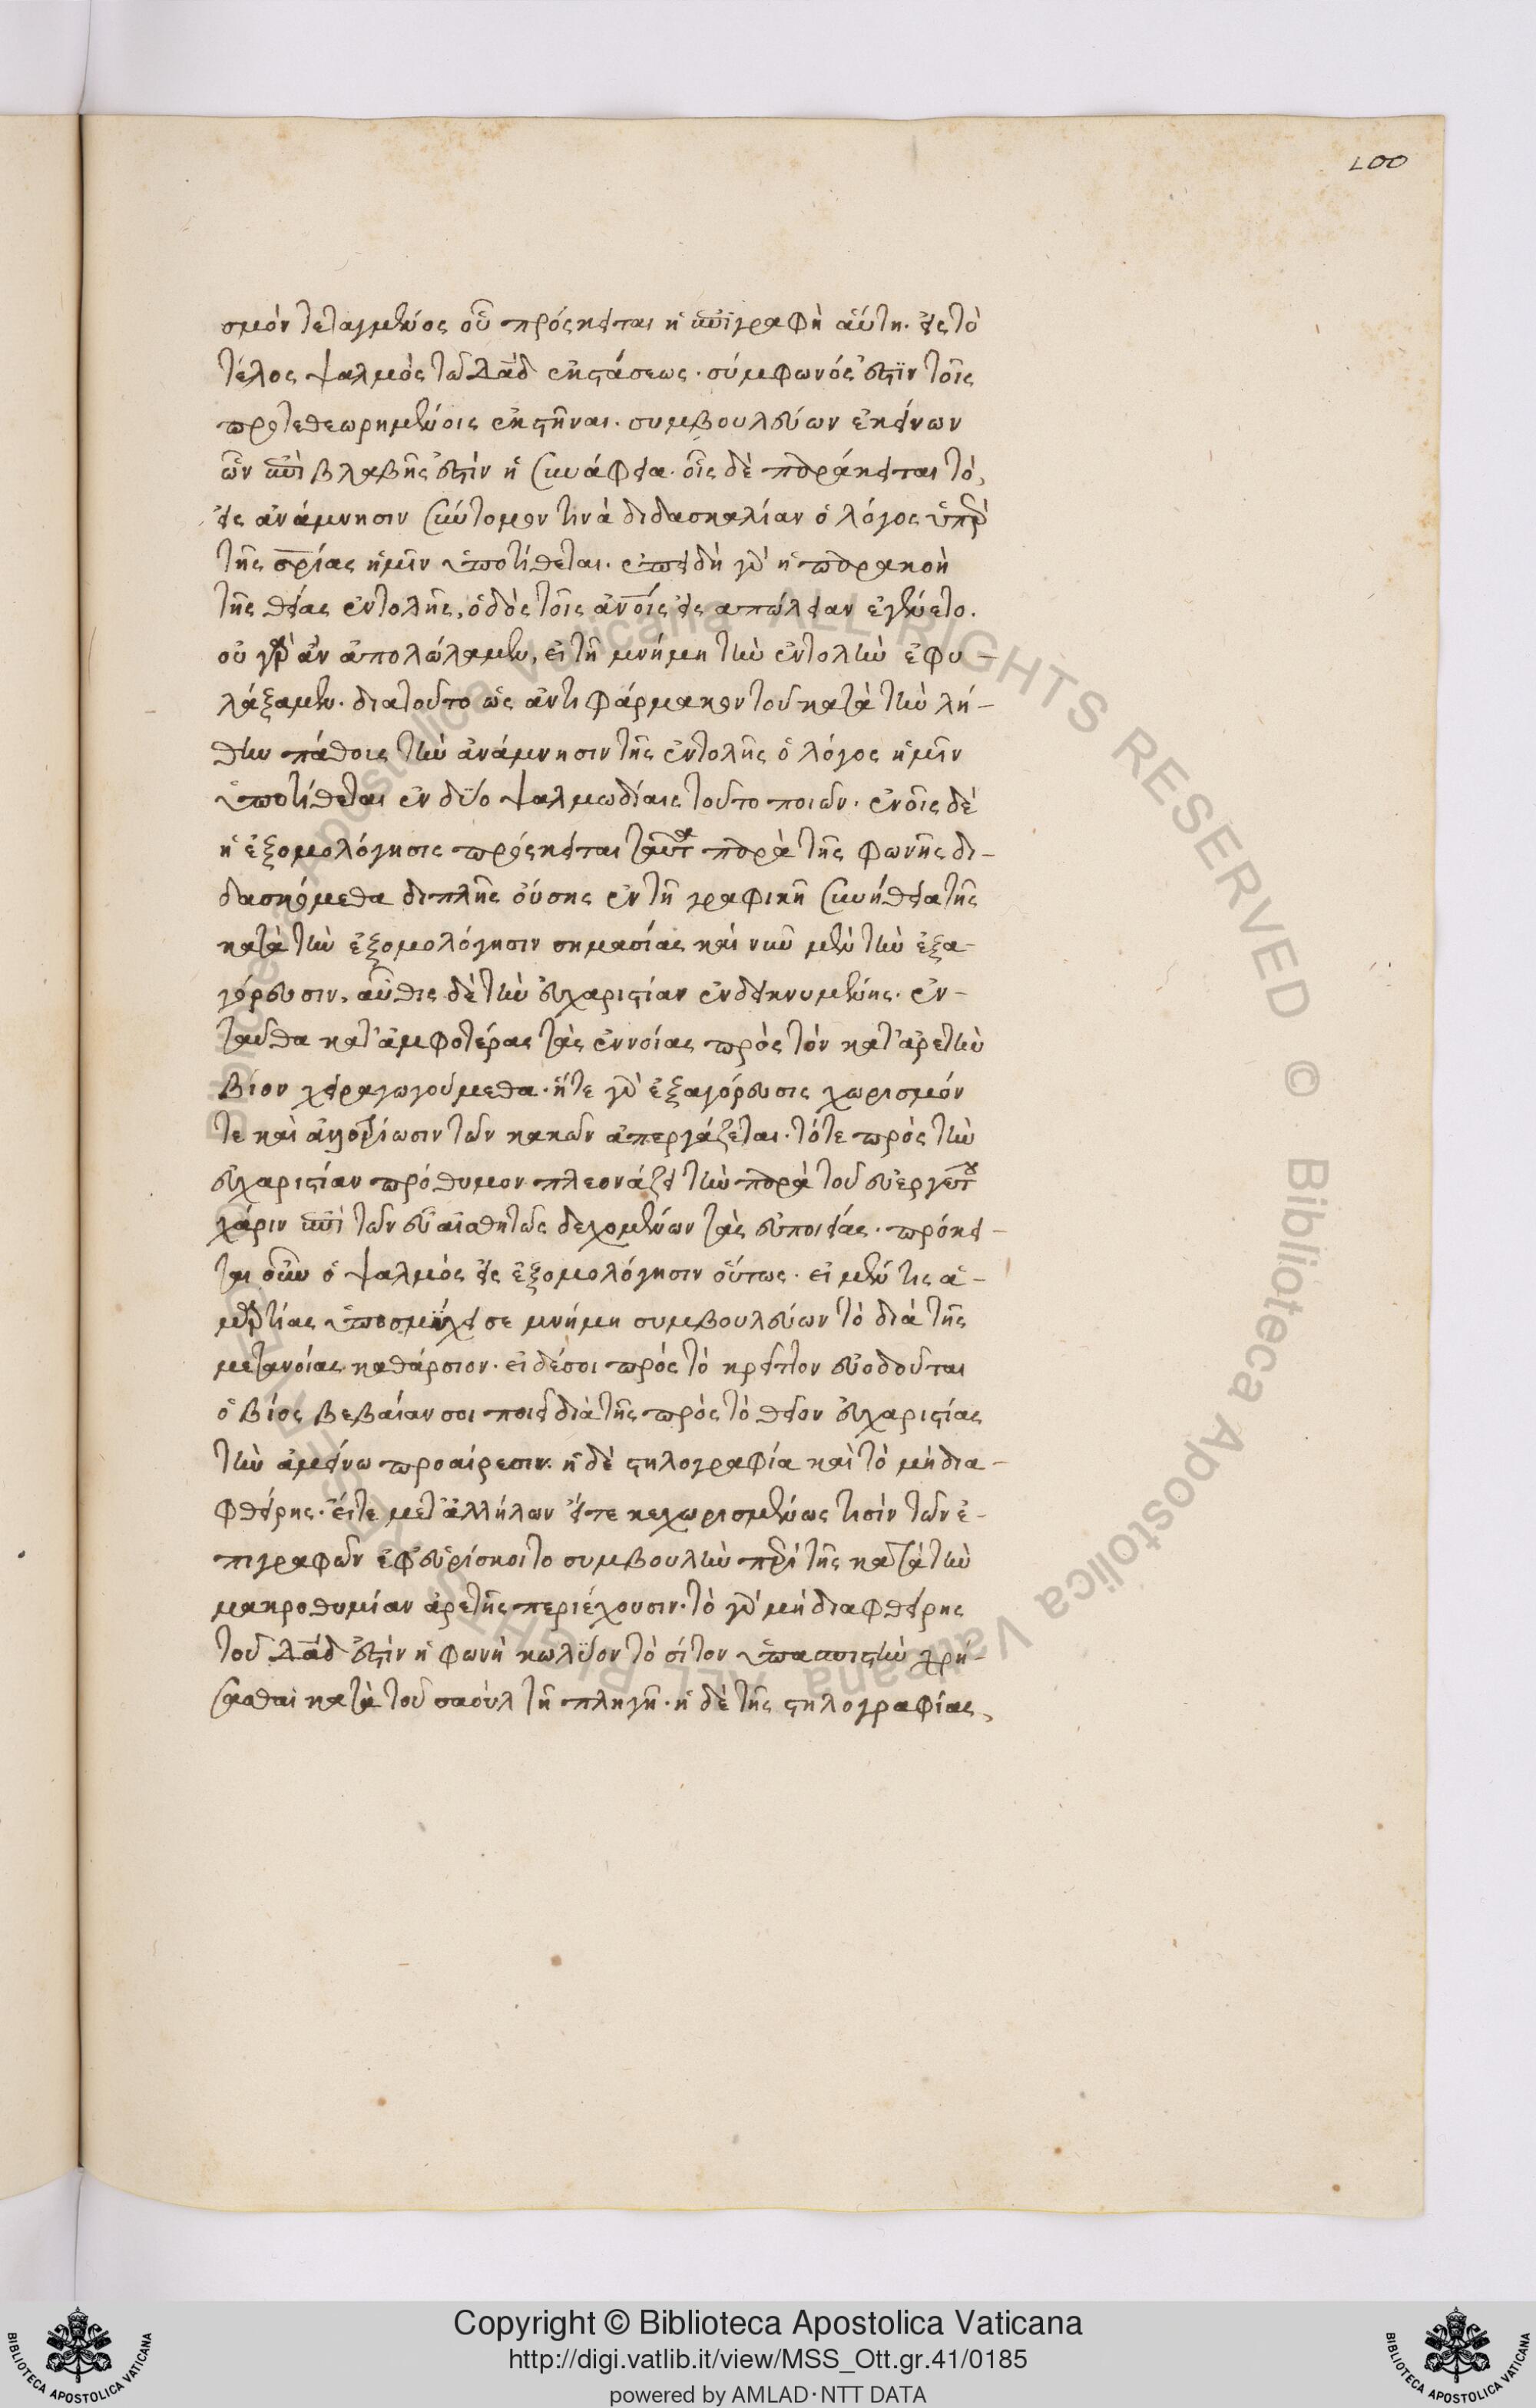 100
σμὸν τεταγμένος οὗ πρόσκειται ἡ ἐπιγραφὴ αὕτη. εἰς τὸ
τέλος ψαλμὸς τῶ δα̅δ ἐκστάσεως. σύμφωνός ἐστιν τοῖς
προτεθεωρημένοις ἐκστῆναι. συμβουλεύων ἐκείνων
ὧν ἐπιβλαβής ἐστιν ἡ συνάφεια. οἷς δὲ παράκειται τὸ,
εἰς ἀνάμνησιν σύντομον τινὰ διδασκαλίαν ὁ λόγος ὑπὲρ
τῆς σ̅ρίας ἡμῖν ὑποτίθεται. ἐπειδὴ γὰρ ἡ παρακοὴ
τῆς θείας ἐντολῆς, ὁδὸς τοῖς ἀν̅οις εἰς ἀπώλειαν ἐγένετο.
οὐ γὰρ ἂν ἀπολώλαμεν, εἰ τῆ μνήμη τὴν ἐντολὴν ἐφυ-
λάξαμεν. διατοῦτο ὡς ἀντιφάρμακον τοῦ κατὰ τὴν λή-
θην πάθους τὴν ἀνάμνησιν τῆς ἐντολῆς ὁ λόγος ἡμῖν
ὑποτίθεται ἐν δύο ψαλμωδίαις τοῦτο ποιῶν. ἐν οἷς δὲ
ἡ ἐξομολόγησις πρόσκειται ταῦτα παρὰ τῆς φωνῆς δι-
δασκόμεθα διπλῆς οὔσης ἐν τῆ γραφικῆ συνήθεια τῆς
κατὰ τὴν ἐξομολόγησιν σημασίας καὶ νῦν μὲν τὴν ἐξα-
γόρευσιν, αὖθις δὲ τὴν εὐχαριστίαν ἐνδεικνυμένης. ἐν-
ταῦθα κατ' ἀμφοτέρας τὰς ἐννοίας πρὸς τὸν κατ' ἀρετὴν
βίον χειραγωγούμεθα. ἥτε γὰρ ἐξαγόρευσις χωρισμόν
τε καὶ ἀλλοτρίωσιν τῶν κακῶν ἀπεργάζεται. τότε πρὸς τὴν
εὐχαριστίαν πρόθυμον πλεονάζει τὴν παρὰ τοῦ εὐεργέτου
χάριν ἐπὶ τῶν εὐαισθήτως δεχομένων τὰς εὐποιίας. πρόκει-
ται οὖν ὁ ψαλμὸς εἰς ἐξομολόγησιν οὕτως. εἰ μέν τις ἁ-
μαρτίας ὑποσμύχει σε μνήμη συμβουλεύων τὸ διὰ τῆς
μετανοίας καθάρσιον. εἰ δέ σοι πρὸς τὸ κρεῖττον εὐοδοῦται
ὁ βίος βεβαίαν σοι ποιεῖ διὰ τῆς πρὸς τὸ θεῖον εὐχαριστίας
τὴν ἀμείνω προαίρεσιν. ἡ δὲ στηλογραφία καὶ τὸ μὴ δια-
φθείρης. εἴτε μετ' ἀλλήλων εἴτε κεχωρισμένως τισὶν τῶν ἐ-
πιγραφῶν ἐφευρίσκοιτο συμβουλὴν περὶ τῆς κατὰ τὴν
μακροθυμίαν ἀρετῆς περιέχουσιν. τὸ γὰρ μὴ διαφθείρης
τοῦ δα̅δ ἐστὶν ἡ φωνὴ κωλύον τὸ σίτον ὑπασπιστὴν χρή-
σασθαι κατὰ τοῦ σαοὺλ τῆ πληγῆ. ἡ δὲ τῆς στηλογραφίας,
Copyright © Biblioteca Apostolica Vaticana
http://digi.vatlib.it/view/MSS_Ott.gr.41/0185
powered by AMLAD·NTT DATA